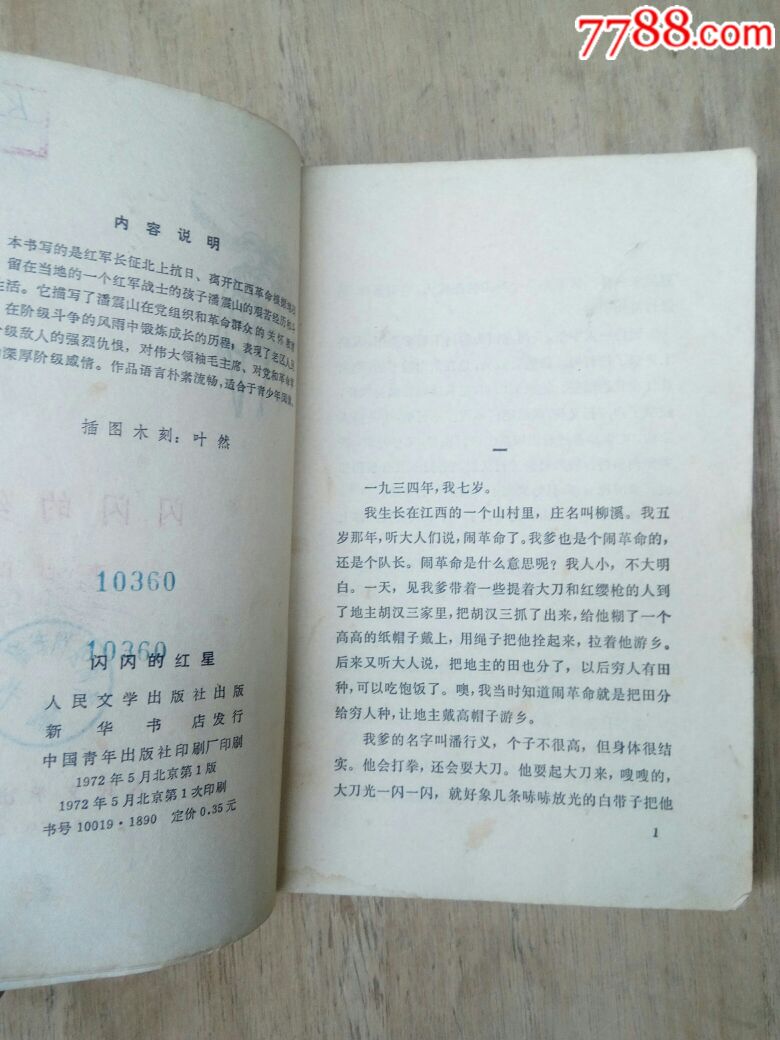 7788.com
内容说明
本书写的是红军长征北上抗日、离开江西革命根据
留在当地的一个红军战士的孩子潘震山的艰苦经历和
生活。它描写了潘震山在党组织和革命群众的关怀
在阶级斗争的风雨中锻炼成长的历程；表现了老区人民
级敌人的强烈仇恨，对伟大领袖毛主席、对党和革命
深厚阶级感情。作品语言朴素流畅，适合于青少年阅读。
插图木刻：叶然
10360
10360
闪闪的红星
人民文学出版社出版
新华书店发行
中国青年出版社印刷厂印刷
1972年5月北京第1版
1972年5月北京第1次印刷
书号10019·1890 定价0.35元
一
一九三四年，我七岁。
我生长在江西的一个山村里，庄名叫柳溪。我五
岁那年，听大人们说，闹革命了。我爹也是个闹革命的，
还是个队长。闹革命是什么意思呢？我人小，不大明
白。一天，见我爹带着一些提着大刀和红缨枪的人到
了地主胡汉三家里，把胡汉三抓了出来，给他糊了一个
高高的纸帽子戴上，用绳子把他拴起来，拉着他游乡。
后来又听大人说，把地主的田也分了，以后穷人有田
种，可以吃饱饭了。噢，我当时知道闹革命就是把田分
给穷人种，让地主戴高帽子游乡。
我爹的名字叫潘行义，个子不很高，但身体很结
实。他会打拳，还会耍大刀。他耍起大刀来，嗖嗖的，
大刀光一闪一闪，就好象几条哧哧放光的白带子把他
1